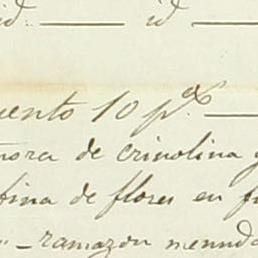 id. — id —
iento 10 p.%—
nora de crinolina g
fina de flores en f
"— ramazon menuda